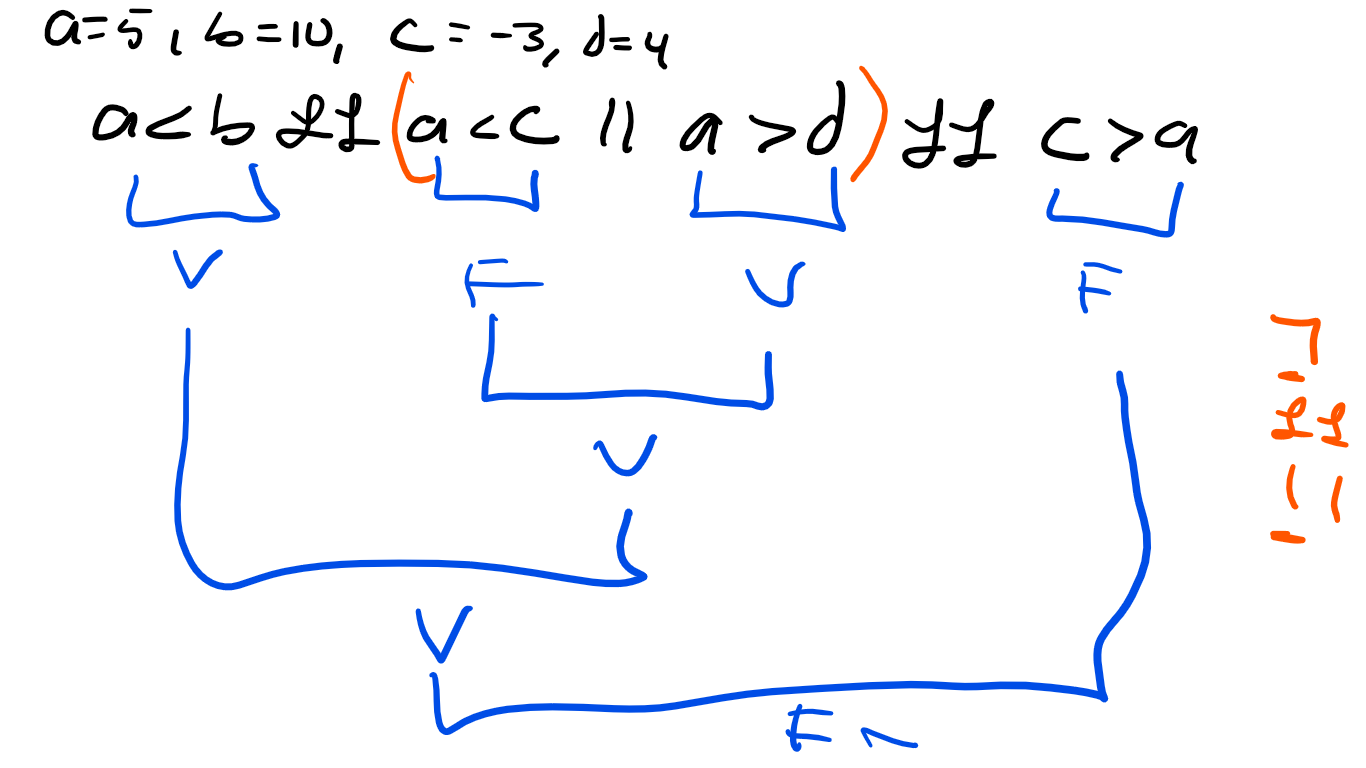 a=5, b=10, c=-3, d=4
a<b && (a<c || a>d) && c>a
V F V F
V
V
F
¬
&&
||